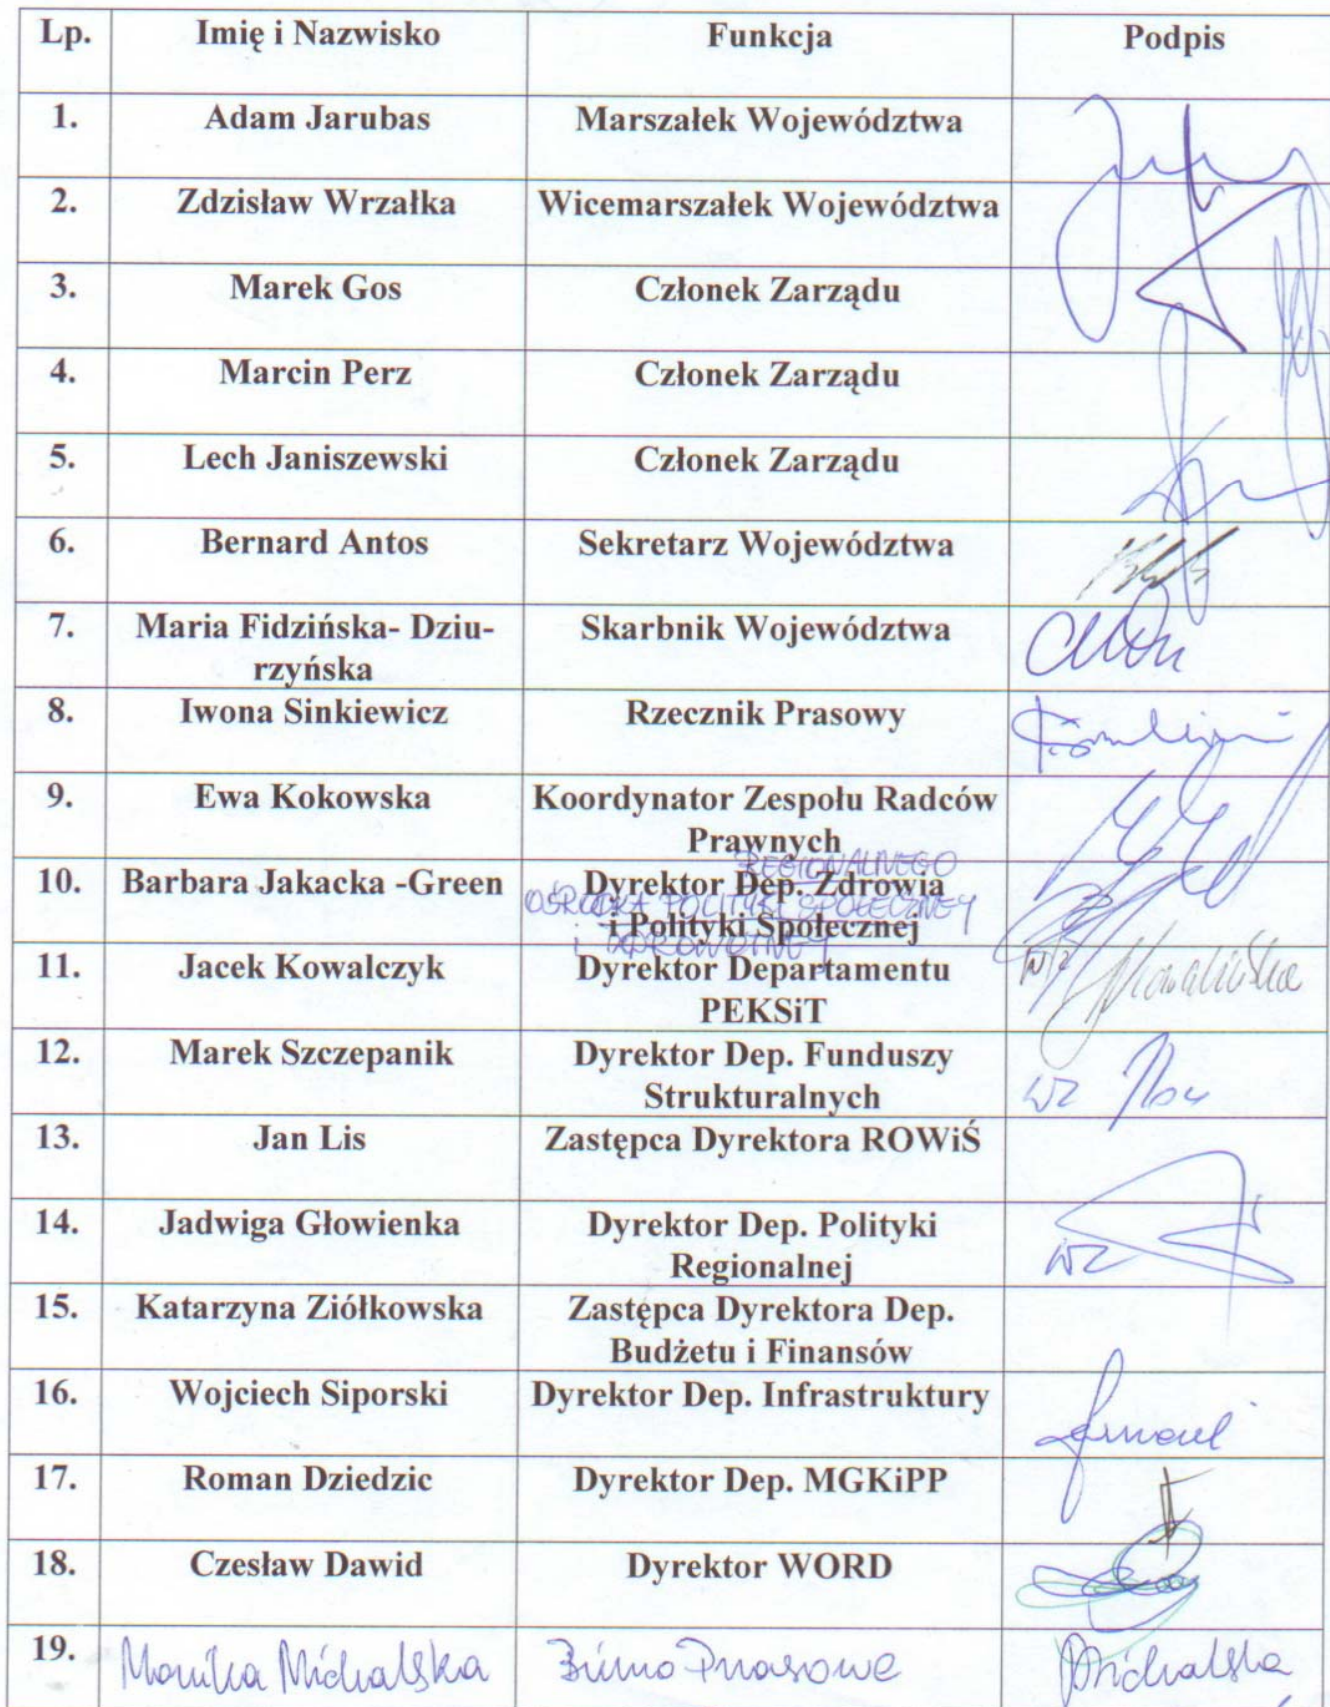 Lp. Imię i Nazwisko Funkcja Podpis
1. Adam Jarubas Marszałek Województwa
2. Zdzisław Wrzałka Wicemarszałek Województwa
3. Marek Gos Członek Zarządu
4. Marcin Perz Członek Zarządu
5. Lech Janiszewski Członek Zarządu
6. Bernard Antos Sekretarz Województwa
7. Maria Fidzińska- Dziu- Skarbnik Województwa
rzyńska
8. Iwona Sinkiewicz Rzecznik Prasowy
9. Ewa Kokowska Koordynator Zespołu Radców
Prawnych
REGIONALNEGO
10. Barbara Jakacka -Green Dyrektor Dep. Zdrowia
OŚRODKA POLITYKI SPOŁECZNEJ
i Polityki Społecznej
i ZDROWOTNEJ
11. Jacek Kowalczyk Dyrektor Departamentu wz
PEKSiT
12. Marek Szczepanik Dyrektor Dep. Funduszy
Strukturalnych wz
13. Jan Lis Zastępca Dyrektora ROWiŚ
14. Jadwiga Głowienka Dyrektor Dep. Polityki
Regionalnej wz
15. Katarzyna Ziółkowska Zastępca Dyrektora Dep.
Budżetu i Finansów
16. Wojciech Siporski Dyrektor Dep. Infrastruktury
17. Roman Dziedzic Dyrektor Dep. MGKiPP
18. Czesław Dawid Dyrektor WORD
19. Monika Michalska Biuro Prasowe Michalska